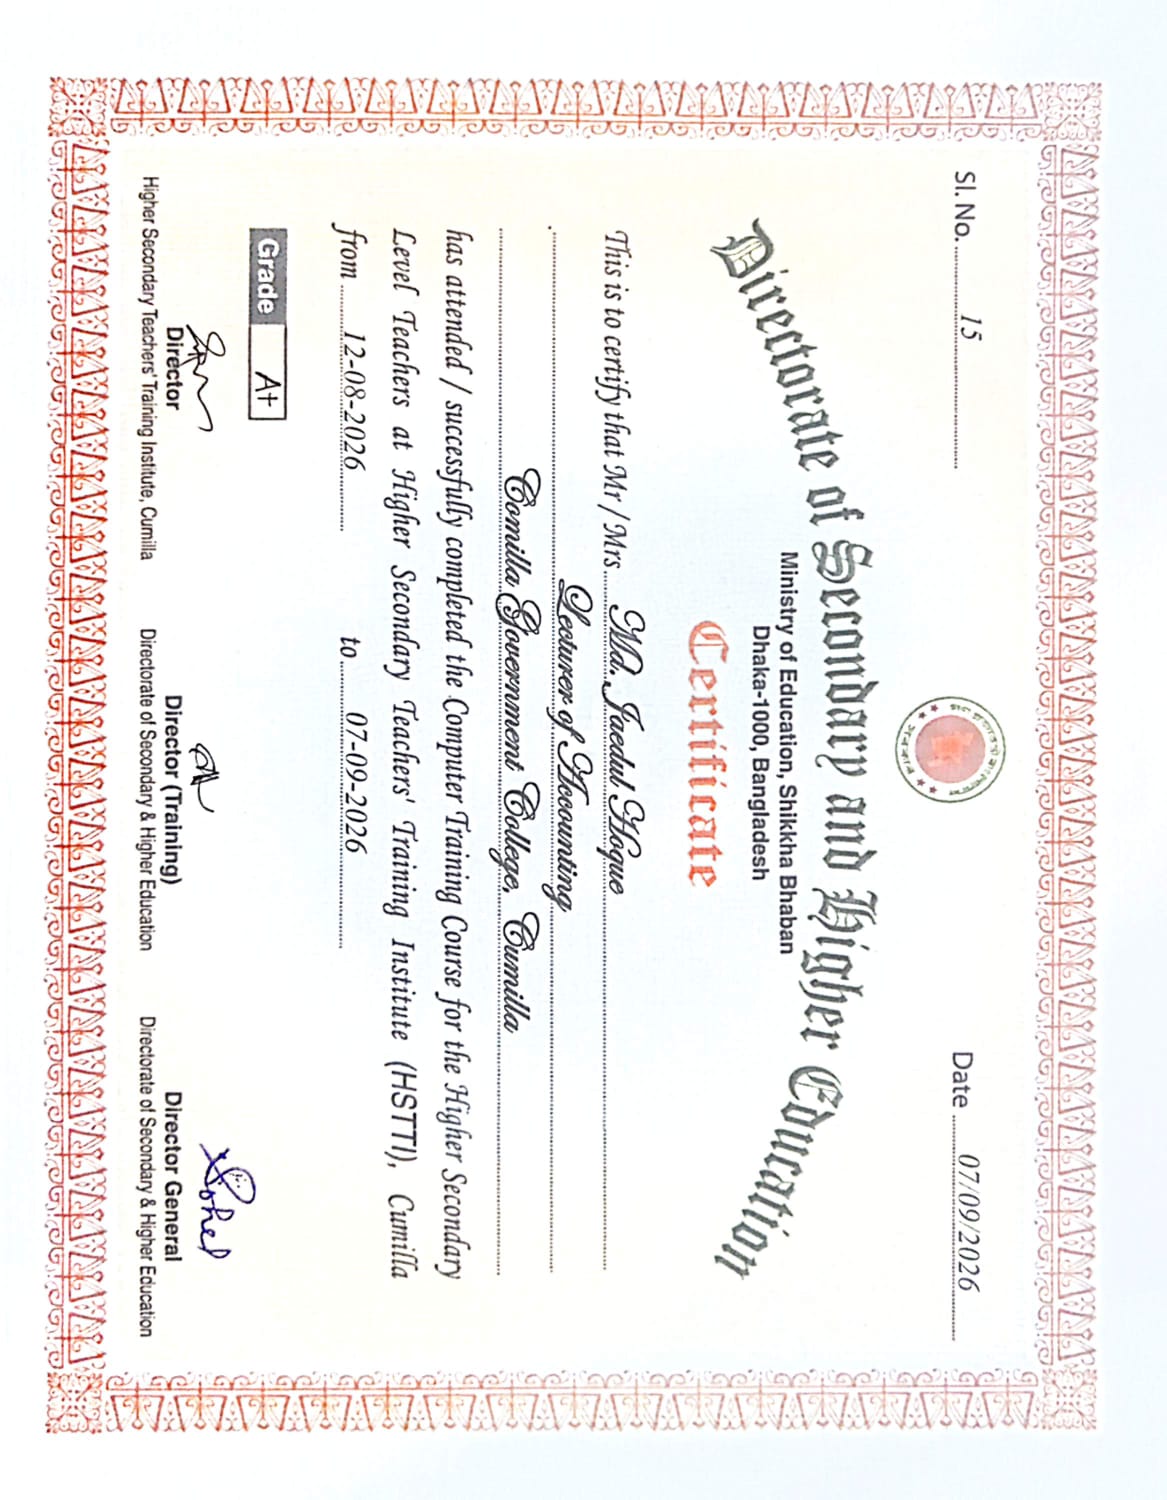 Sl. No. 15
Date 07/09/2026
Directorate of Secondary and Higher Education
Ministry of Education, Shikkha Bhaban
Dhaka-1000, Bangladesh
Certificate
This is to certify that Mr / Mrs. Md. Jaedul Hoque
Lecturer of Accounting
Comilla Government College, Cumilla
has attended / successfully completed the Computer Training Course for the Higher Secondary
Level Teachers at Higher Secondary Teachers' Training Institute (HSTTI), Cumilla
from 12-08-2026 to 07-09-2026
Grade A+
Director
Higher Secondary Teachers' Training Institute, Cumilla
Director (Training)
Directorate of Secondary & Higher Education
Sohel
Director General
Directorate of Secondary & Higher Education